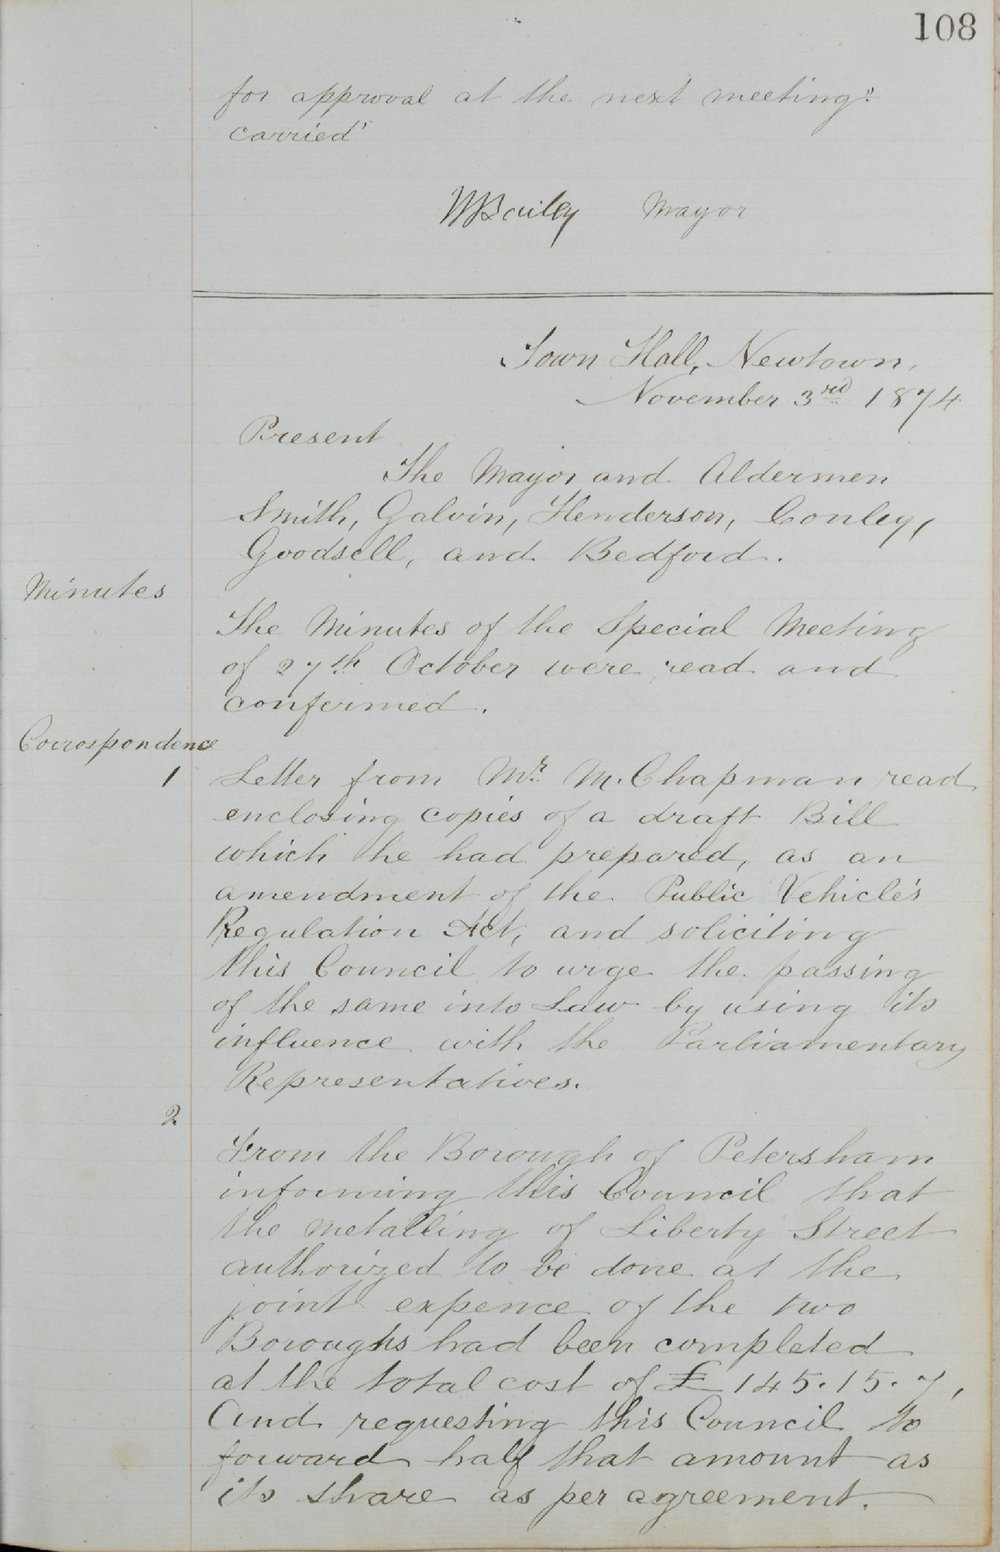 108
for approval at the next meeting"
carried'
WBailey Mayor
Town Hall, Newtown,
November 3rd 1874
Present
The Mayor and Aldermen
Smith, Galvin, Henderson, Conley,
Goodsell, and Bedford.
Minutes
The Minutes of the Special Meeting
of 27th October were read and
confirmed.
Correspondence
1 Letter from Mr. M. Chapman read
enclosing copies of a draft Bill
which he had prepared, as an
amendment of the Public Vehicle's
Regulation Act, and soliciting
this Council to urge the passing
of the same into Law by using its
influence with the Parliamentary
Representatives.
2
From the Borough of Petersham
informing this Council that
the metalling of Liberty Street
authorized to be done at the
joint expence of the two
Boroughs had been completed
at the total cost of £145.15.7,
And requesting this Council to
forward half that amount as
its share as per agreement.